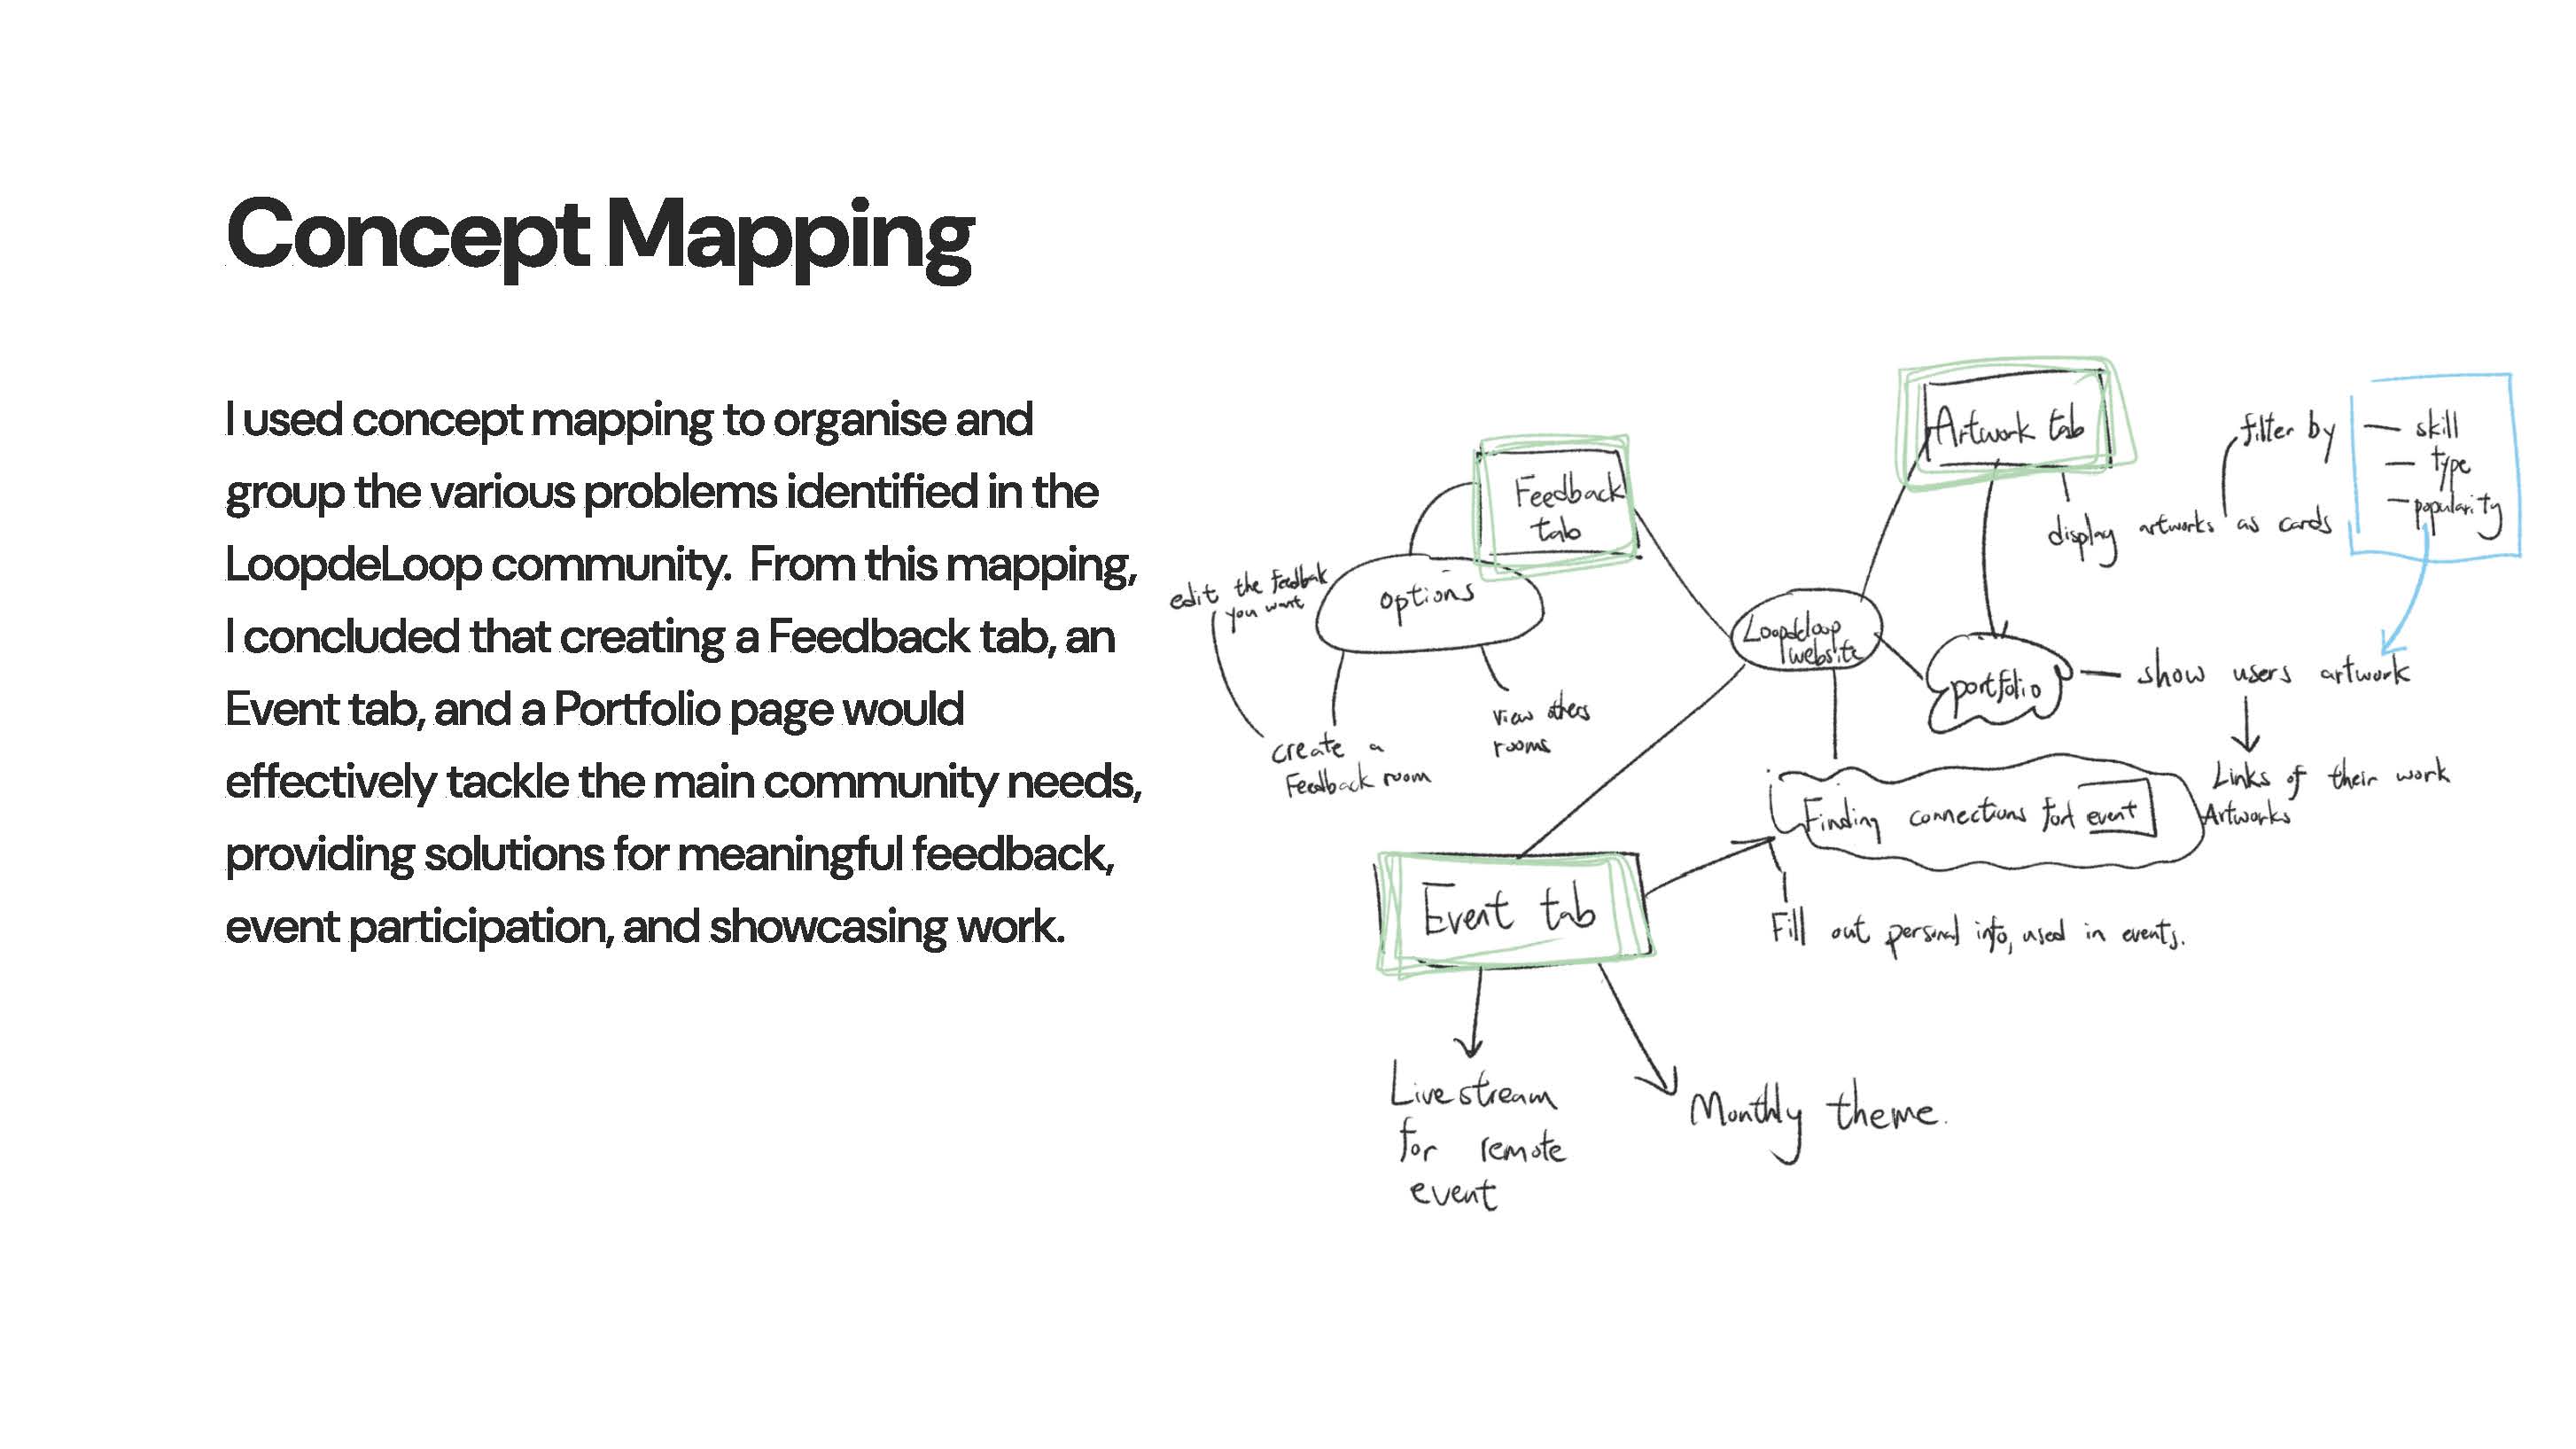 Concept Mapping
I used concept mapping to organise and
group the various problems identified in the
LoopdeLoop community.  From this mapping,
I concluded that creating a Feedback tab, an
Event tab, and a Portfolio page would
effectively tackle the main community needs,
providing solutions for meaningful feedback,
event participation, and showcasing work.
Artwork tab
filter by
— skill
— type
— popularity
display artworks as cards
Feedback
tab
options
edit the feedbak
you want
create a
Feedback room
view others
rooms
Loopdeloop
website
portfolio
— show users artwork
Links of their work
Artworks
Finding connections for event
Event tab
Fill out personal info, used in events.
Livestream
for remote
event
Monthly theme.